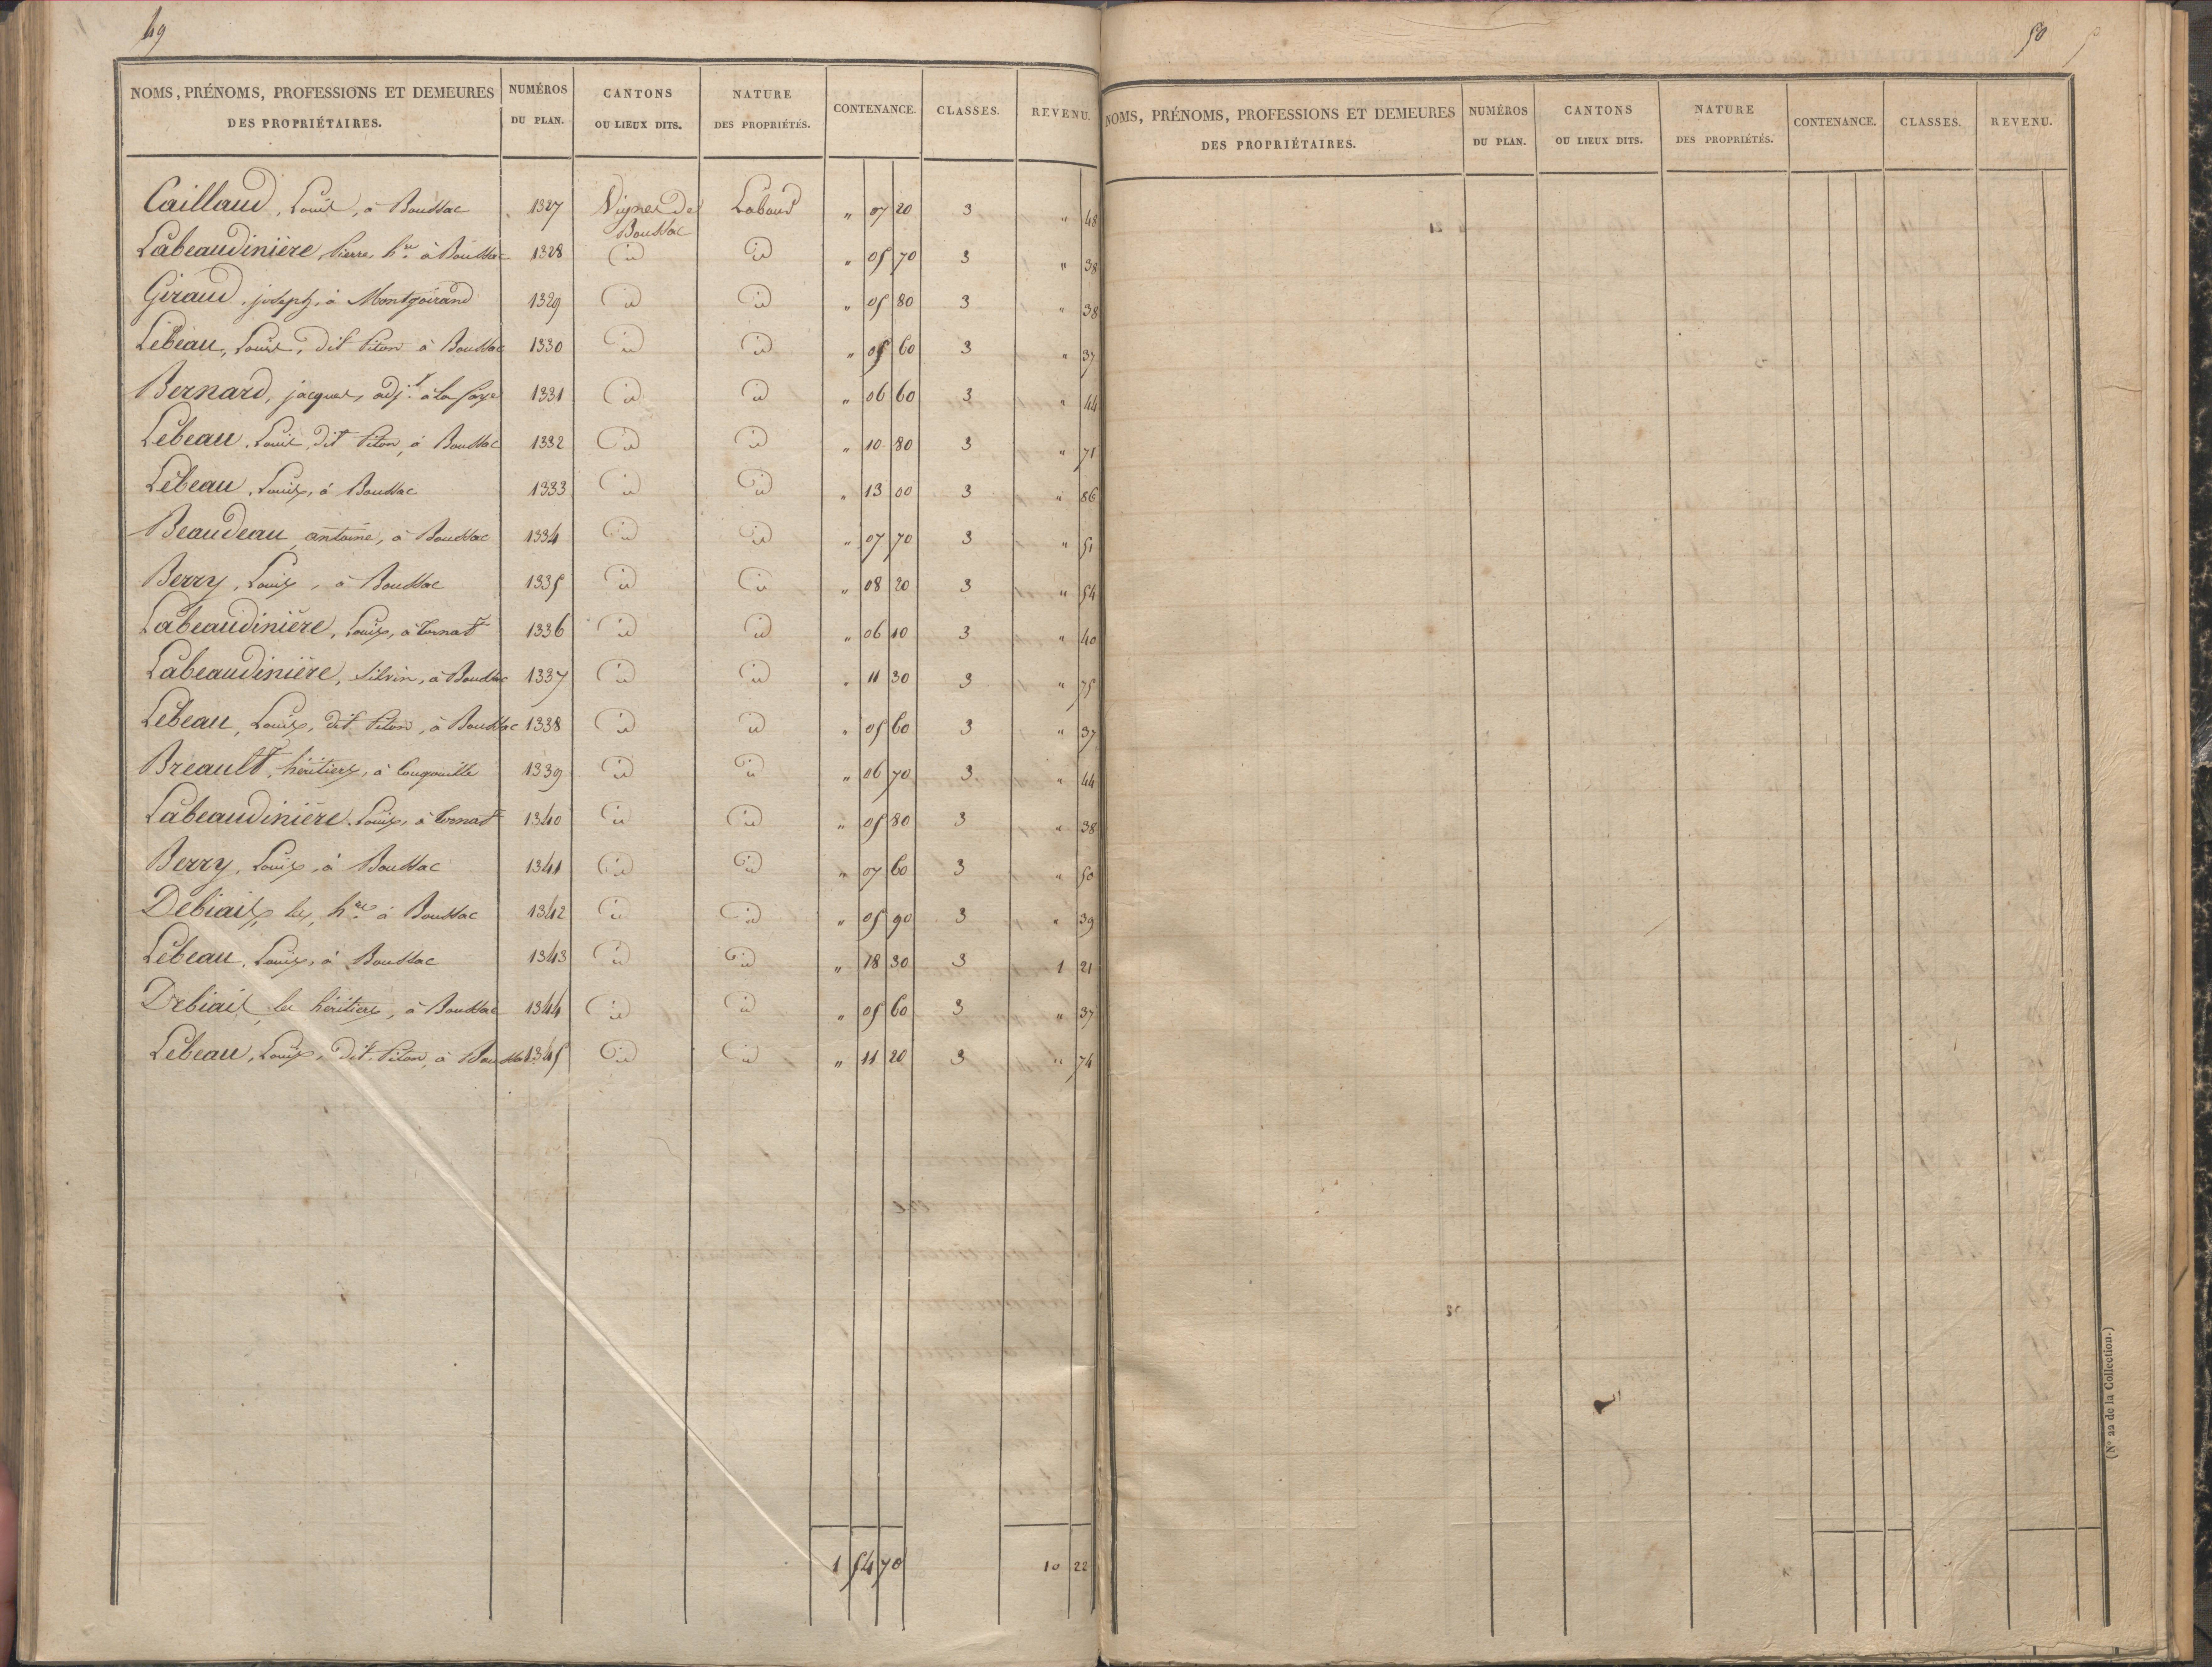 49
NOMS, PRÉNOMS, PROFESSIONS ET DEMEURES DES PROPRIÉTAIRES. NUMÉROS DU PLAN. CANTONS OU LIEUX DITS. NATURE DES PROPRIÉTÉS. CONTENANCE. CLASSES. REVENU.
Caillaud, Louis, à Boussac 1327 Vignes de Boussac Labour " 07 20 3 " 48
Labeaudinière, Pierre hre à Boussac 1328 id id " 05 70 3 " 38
Giraud, joseph, à Montgoirand 1329 id id " 05 80 3 " 38
Lebeau, Louis, dit Piton à Boussac 1330 id id " 05 60 3 " 37
Bernard, jacques, adjt à la faye 1331 id id " 06 60 3 " 44
Lebeau, Louis dit Piton, à Boussac 1332 id id " 10 80 3 " 71
Lebeau, Louis, à Boussac 1333 id id " 13 00 3 " 86
Beaudeau, antoine, à Boussac 1334 id id " 07 70 3 " 51
Berry, Louis, à Boussac 1335 id id " 08 20 3 " 54
Labeaudinière, Louis, à Cornat 1336 id id " 06 10 3 " 40
Labeaudinière, Silvin, à Boussac 1337 id id " 11 30 3 " 75
Lebeau, Louis, dit Piton, à Boussac 1338 id id " 05 60 3 " 37
Breault, héritiers, à 1339 id id " 06 70 3 " 44
Labeaudinière, Louis, à Cornat 1340 id id " 05 80 3 " 38
Berry, Louis, à Boussac 1341 id id " 07 60 3 " 50
Debiais, les hres à Boussac 1342 id id " 05 90 3 " 39
Lebeau, Louis, à Boussac 1343 id id " 18 30 3 1 21
Debiais, les héritiers, à Boussac 1344 id id " 05 60 3 " 37
Lebeau, Louis, dit Piton, à Boussac 1345 id id " 11 20 3 " 74
1 54 70 10 22
50
NOMS, PRÉNOMS, PROFESSIONS ET DEMEURES DES PROPRIÉTAIRES. NUMÉROS DU PLAN. CANTONS OU LIEUX DITS. NATURE DES PROPRIÉTÉS. CONTENANCE. CLASSES. REVENU.
(N° 22 de la Collection.)